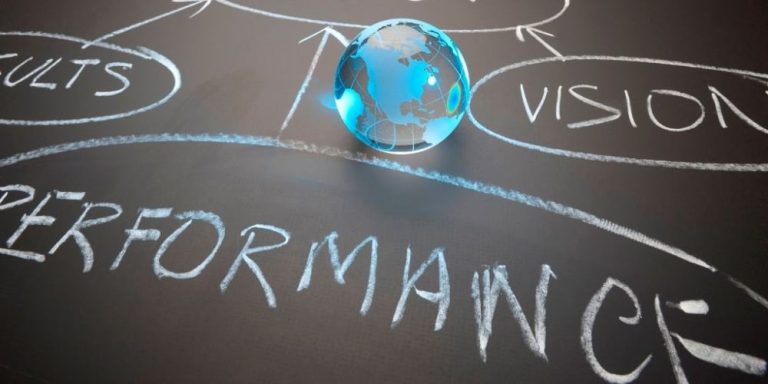 SULTS
VISION
PERFORMANCE